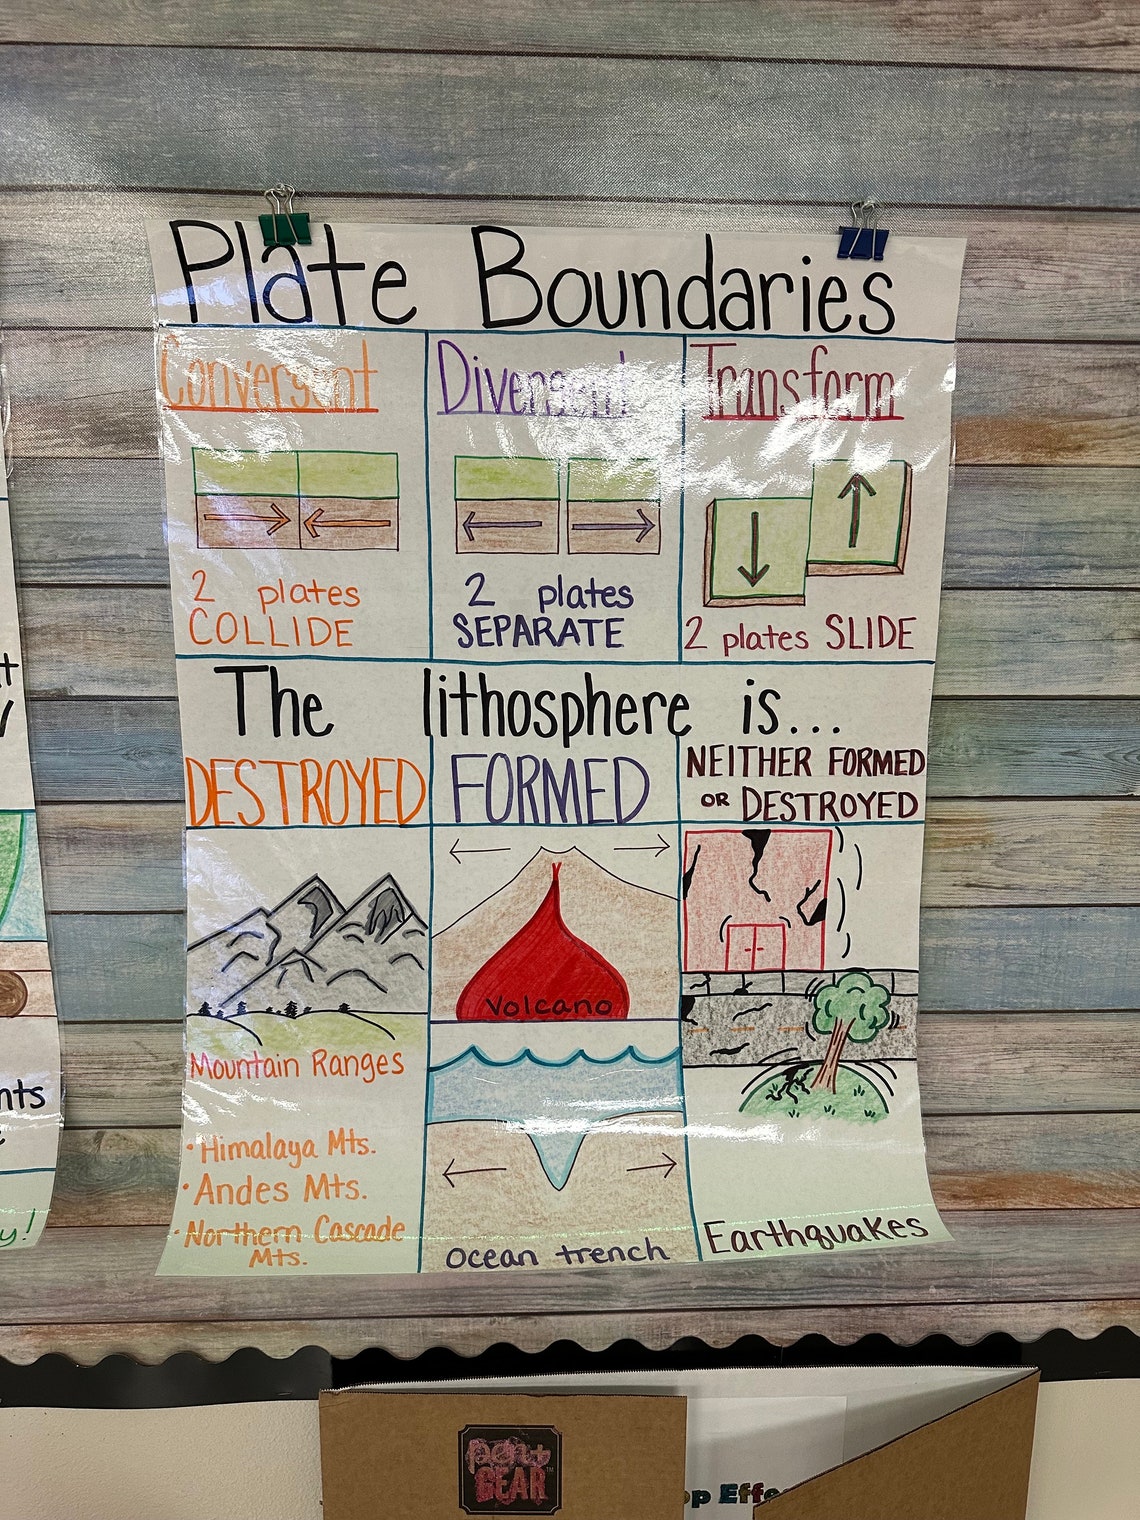 Plate Boundaries
Convergent
Divergent
Transform
2 plates
COLLIDE
2 plates
SEPARATE
2 plates SLIDE
The lithosphere is...
DESTROYED
FORMED
NEITHER FORMED
OR DESTROYED
Mountain Ranges
• Himalaya Mts.
• Andes Mts.
• Northern Cascade
Mts.
Volcano
Ocean trench
Earthquakes
pen+
GEAR